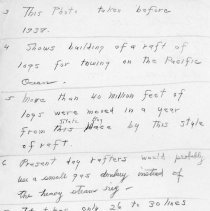 3 This Photo taken before
1938.
4 Shows building of a raft of
logs for towing on the Pacific
Ocean.
5 More than 40 million feet of
logs were moved in a year
from this by this style
of raft.
6 Present day rafters would probably
use a small gas donkey instead of
the heavy steam rig -
only 26 to 30 lines